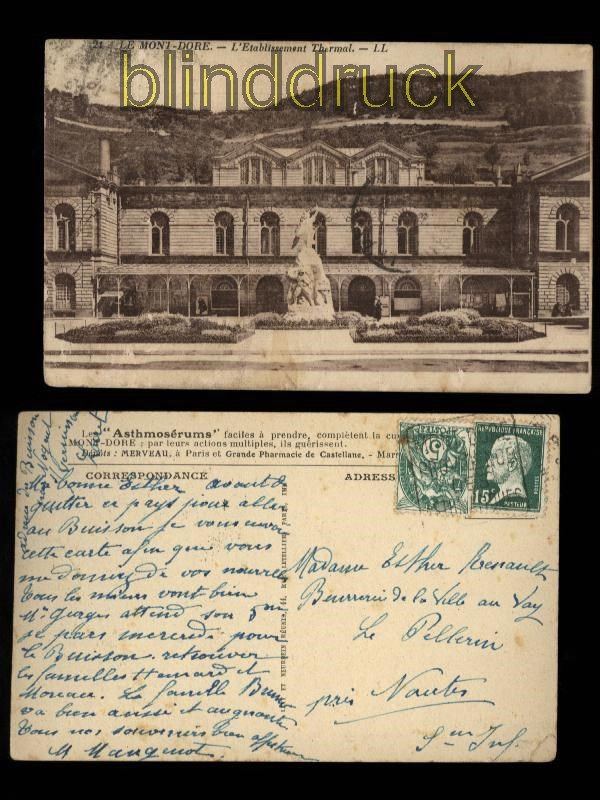 blinddruck
21 LE MONT-DORE. — L'Etablissement Thermal. — LL
Les "Asthmosérums" faciles à prendre, complètent la cu
MONT-DORE ; par leurs actions multiples, ils guérissent.
Dépôts : MERVEAU, à Paris et Grande Pharmacie de Castellane, - Mar
CORRESPONDANCE
ADRES
RÉPUBLIQUE FRANÇAISE
15
POSTES
PASTEUR
5
Ma bonne Esther avant de
quitter ce pays pour aller
au Buisson je vous envoie
cette carte afin que vous
me donniez de vos nouvelles
Tous les miens vont bien
Mr Georges attend son
je pars mercredi pour
le Buisson retrouver
les familles et
Moreau. La famille
va bien aussi et augmente
Tous nos souvenirs bien
M Mauginot
Madame Esther Renault
Beurrerie de la Ville au Vay
Le Pellerin
près Nantes
Inf.